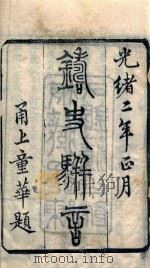 光緒二年正月
鑄史駢言
甬上童華題